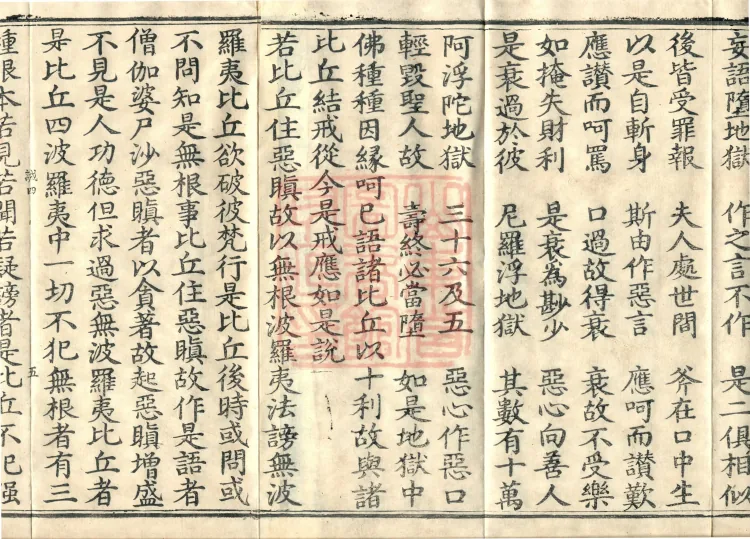 妄語墮地獄 作之言不作 是二俱相似
後皆受罪報 夫人處世間 斧在口中生
以是自斬身 斯由作惡言 應呵而讃歎
應讃而呵罵 口過故得衰 衰故不受樂
如掩失財利 是衰為尠少 惡心向善人
是衰過於彼 尼羅浮地獄 其數有十萬
阿浮陀地獄 三十六及五 惡心作惡口
輕毀聖人故 壽終必當墮 如是地獄中
佛種種因緣呵已語諸比丘以十利故與諸
比丘結戒從今是戒應如是說
若比丘住惡瞋故以無根波羅夷法謗無波
羅夷比丘欲破彼梵行是比丘後時或問或
不問知是無根事比丘住惡瞋故作是語者
僧伽婆尸沙惡瞋者以貪著故起惡瞋增盛
不見是人功德但求過惡無波羅夷比丘者
是比丘四波羅夷中一切不犯無根者有三
誠四 五
種根本若見若聞若疑謗者是比丘不犯强